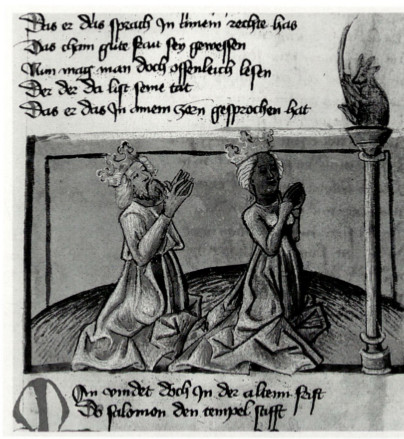 Das er das sprach In einem rechte has
Das chain gute frau sey gewessen
Nun mag man doch offenleich lesen
Der der da list seine tat
Das er das In ainem zorn gesprochen hat
Man vindet doch In der altenn
Do salomon den tempel stifft